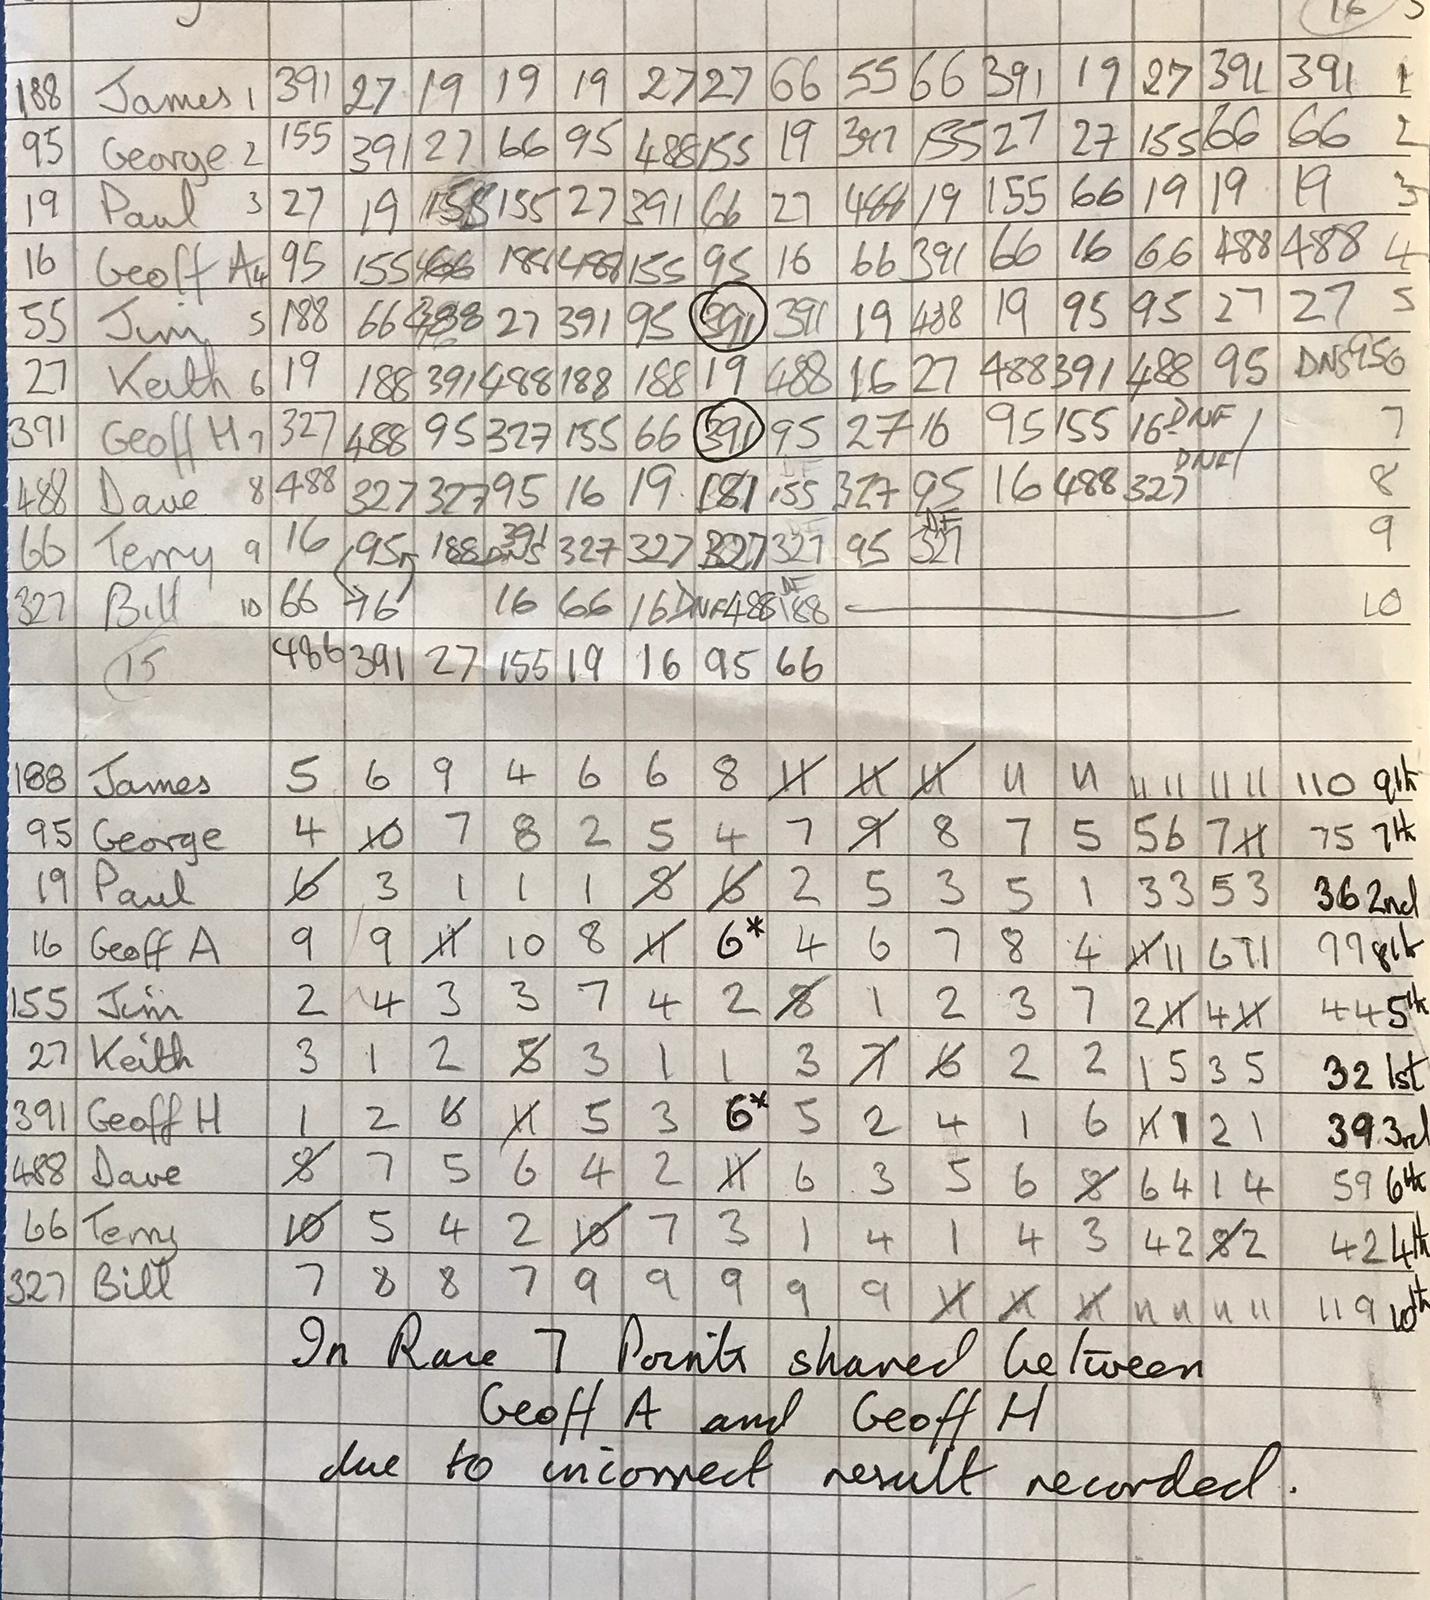 16 5
188 James 1 391 27 19 19 19 27 27 66 55 66 391 19 27 391 391 1
95 George 2 155 391 27 66 95 488 155 19 391 155 27 27 155 66 66 2
19 Paul 3 27 19 155 27 391 66 27 488 19 155 66 19 19 19 3
16 Geoff A 4 95 155 66 188 488 155 95 16 66 391 66 16 66 488 488 4
55 Jim 5 188 66 488 27 391 95 391 391 19 488 19 95 95 27 27 5
27 Keith 6 19 188 391 488 188 188 19 488 16 27 488 391 488 95 DNS 95 6
391 Geoff H 7 327 488 95 327 155 66 391 95 27 16 95 155 16 DNF 7
488 Dave 8 488 327 327 95 16 19 181 155 327 95 16 488 327 DNF 8
66 Terry 9 16 95 188 391 DNS 327 327 327 327 95 327 9
327 Bill 10 66 16 16 66 16 DNF 488 188 10
15 486 391 27 155 19 16 95 66
188 James 5 6 9 4 6 6 8 11 11 11 11 11 11 11 11 11 110 9th
95 George 4 10 7 8 2 5 4 7 9 8 7 5 5 6 7 11 75 7th
19 Paul 6 3 1 1 1 8 6 2 5 3 5 1 3 3 5 3 36 2nd
16 Geoff A 9 9 11 10 8 11 6* 4 6 7 8 4 11 11 6 11 99 8th
155 Jim 2 4 3 3 7 4 2 8 1 2 3 7 2 11 4 11 44 5th
27 Keith 3 1 2 5 3 1 1 3 7 6 2 2 1 5 3 5 32 1st
391 Geoff H 1 2 6 11 5 3 6* 5 2 4 1 6 11 1 2 1 39 3rd
488 Dave 8 7 5 6 4 2 11 6 3 5 6 8 6 4 1 4 59 6th
66 Terry 10 5 4 2 10 7 3 1 4 1 4 3 4 2 8 2 42 4th
327 Bill 7 8 8 7 9 9 9 9 9 11 11 11 11 11 11 11 119 10th
In Race 7 Points shared between
Geoff A and Geoff H
due to incorrect result recorded.